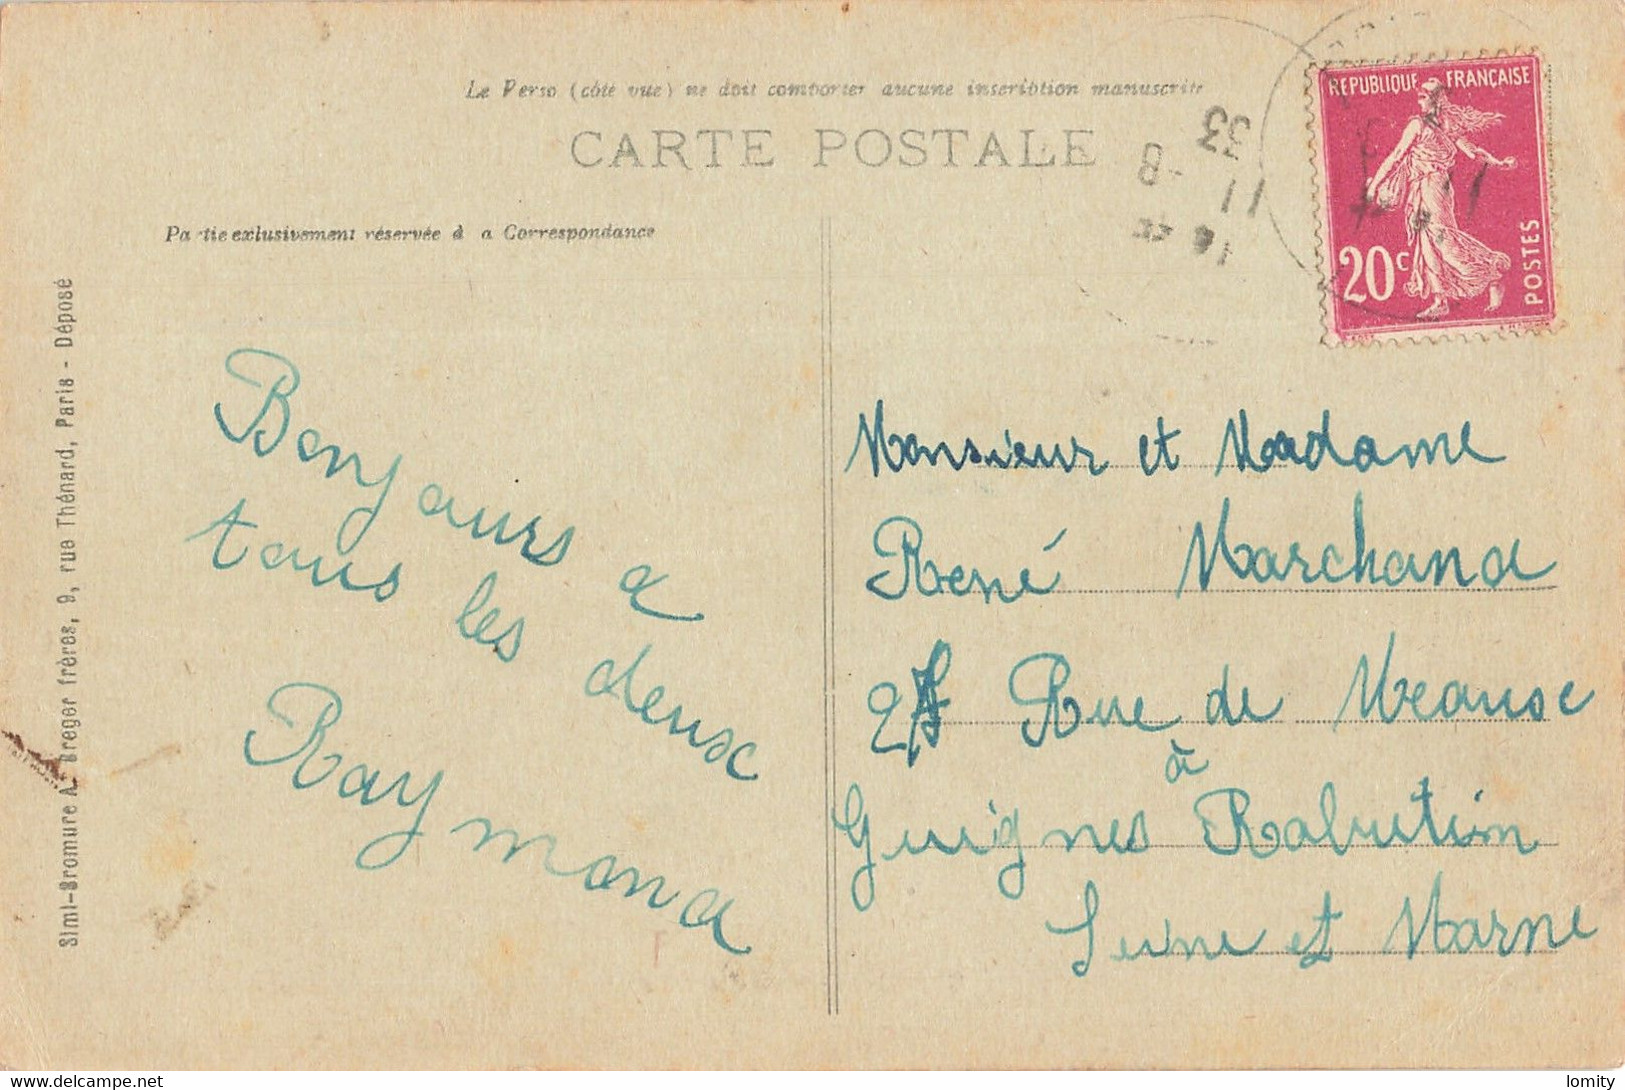 Le Verso (côté vue) ne doit comporter aucune inscription manuscrite
CARTE POSTALE
Partie exclusivement réservée à a Correspondance
Simi-Bromure A. Breger frères, 9, rue Thénard, Paris - Déposé
REPUBLIQUE FRANÇAISE
20c
POSTES
33
11
8
Bonjours a
tous les deux
Raymond
Monsieur et Madame
René Marchand
Rue de Meaux
à
Guignes Rabutin
Seine et Marne
delcampe.net
lomity